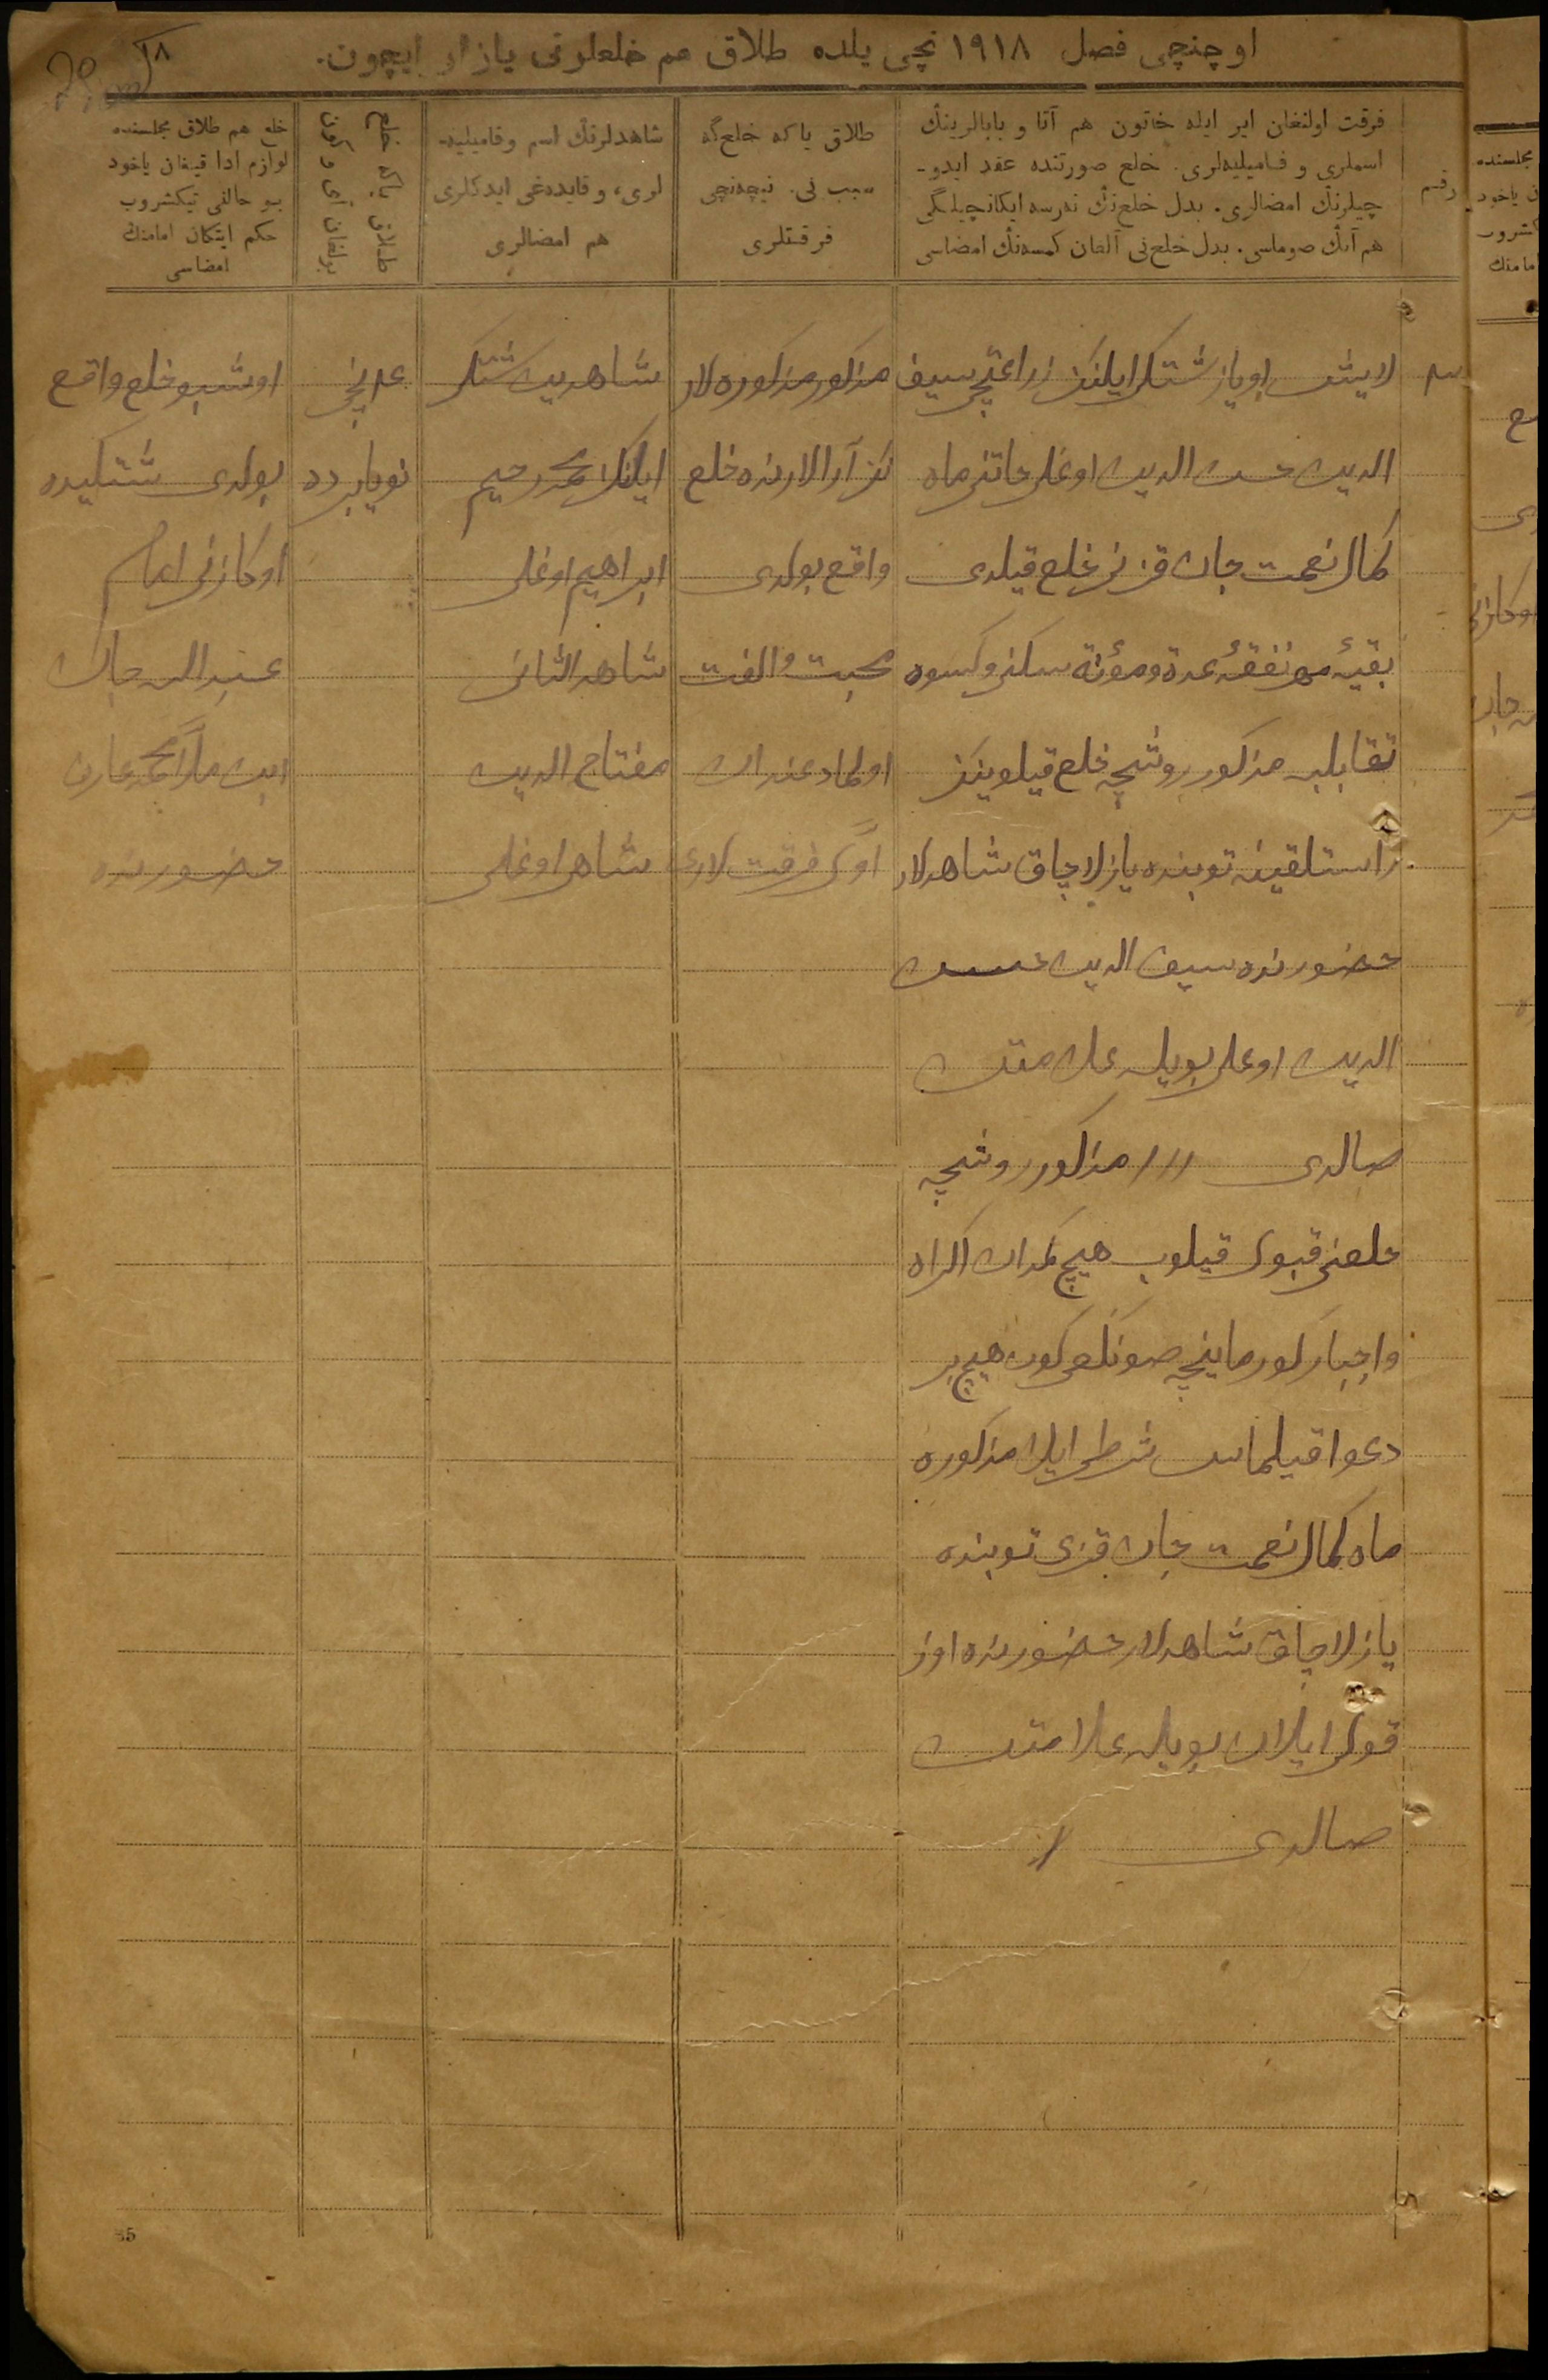 اوچنچی فصل ۱۹۱۸ نچی یلده طلاق هم خلعلرنی یازار ایچون.
۱۸
رقم
فرقت اولنغان ایر ایله خاتون هم آتا و بابالرینڭ
اسملری و فامیلیه‌لری. خلع صورتنده عقد ایدو-
چیلرنڭ امضالری. بدل خلع‌نڭ نه‌رسه ایکانچیلگی
هم آنڭ صوماسی. بدل خلع‌نی آلغان کمسه‌نڭ امضاسی
طلاق یا که خلع‌گه
سبب نی. نیچه‌نچی
فرقتلری
شاهدلرنڭ اسم و فامیلیه-
لری، و قایده‌غی ایدکلری
هم امضالری
طلاق یاکه خلع
بولغان آی و کون
خلع هم طلاق مجلسنده
لوازم ادا قیغان یاخود
بو حالنی تیکشروب
حکم ایتکان امامنڭ
امضاسی
لایش اویاز ششتکر ایلنڭ زراعتچی سیف
الدین حسن الدین اوغلی خاتنی ماه
کمال نعمت جان قزنی خلع قیلدی
بقیهٔ مهر نفقهٔ عدة و مؤنة سکنی و کسوه
تقابلیه مذکور روشچه خلع قیلوینڭ
راستلقینه توبنده یازلاچاق شاهدلار
حضورنده سیف الدین حسن
الدین اوغلی بویله علامتن
صالدی /// مذکور روشچه
خلعنی قبول قیلوب هیچ کمدان اکراه
واجبار کورماینچه صونکغی کون هیچ بر
دعوا قیلماس شرطی ایلا مذکوره
ماه کمال نعمت جان قزی توبنده
یازلاچاق شاهدلار حضورنده اوز
قولی ایلان بویله علامتن
صالدی /
مذکور مذکوره لار
نڭ آرالارنده خلع
واقع بولدی
محبت و الفت
اولماد غندان
اوّل فرقت لاری
شاهد بر ششتکر
ایلنڭ محمد رحیم
ابراهیم اوغلی
شاهد الثانی
مفتاح الدین
شاهر اوغلی
نویابرده
اوشبو خلع واقع
بولدی ششتکیده
اوکازنی امام
عبدالله جان
ابن ملا محمد عارف
حضورنده
85